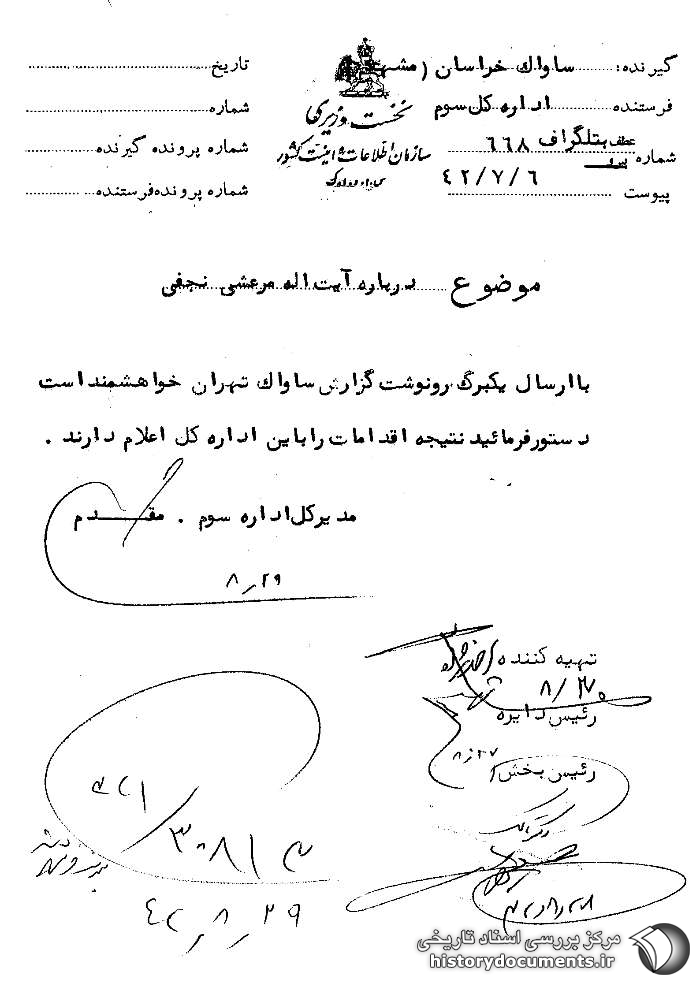 گیرنده: ساواک خراسان (مشهد)
فرستنده اداره کل سوم
شماره عطف بتلگراف ۶۶۸
۴۲/۷/۶
پیوست
نخست وزیری
سازمان اطلاعات و امنیت کشور
تاریخ
شماره
شماره پرونده گیرنده
شماره پرونده فرستنده
موضوع درباره آیت اله مرعشی نجفی
با ارسال یکبرگ رونوشت گزارش ساواک تهران خواهشمند است
دستور فرمائید نتیجه اقدامات را باین اداره کل اعلام دارند .
مدیر کل اداره سوم . مقدم
۸٫۲۹
تهیه کننده
۸/۲۰
رئیس دایره
رئیس بخش
۴۲٫۸٫۲۹
مرکز بررسی اسناد تاریخی
historydocuments.ir